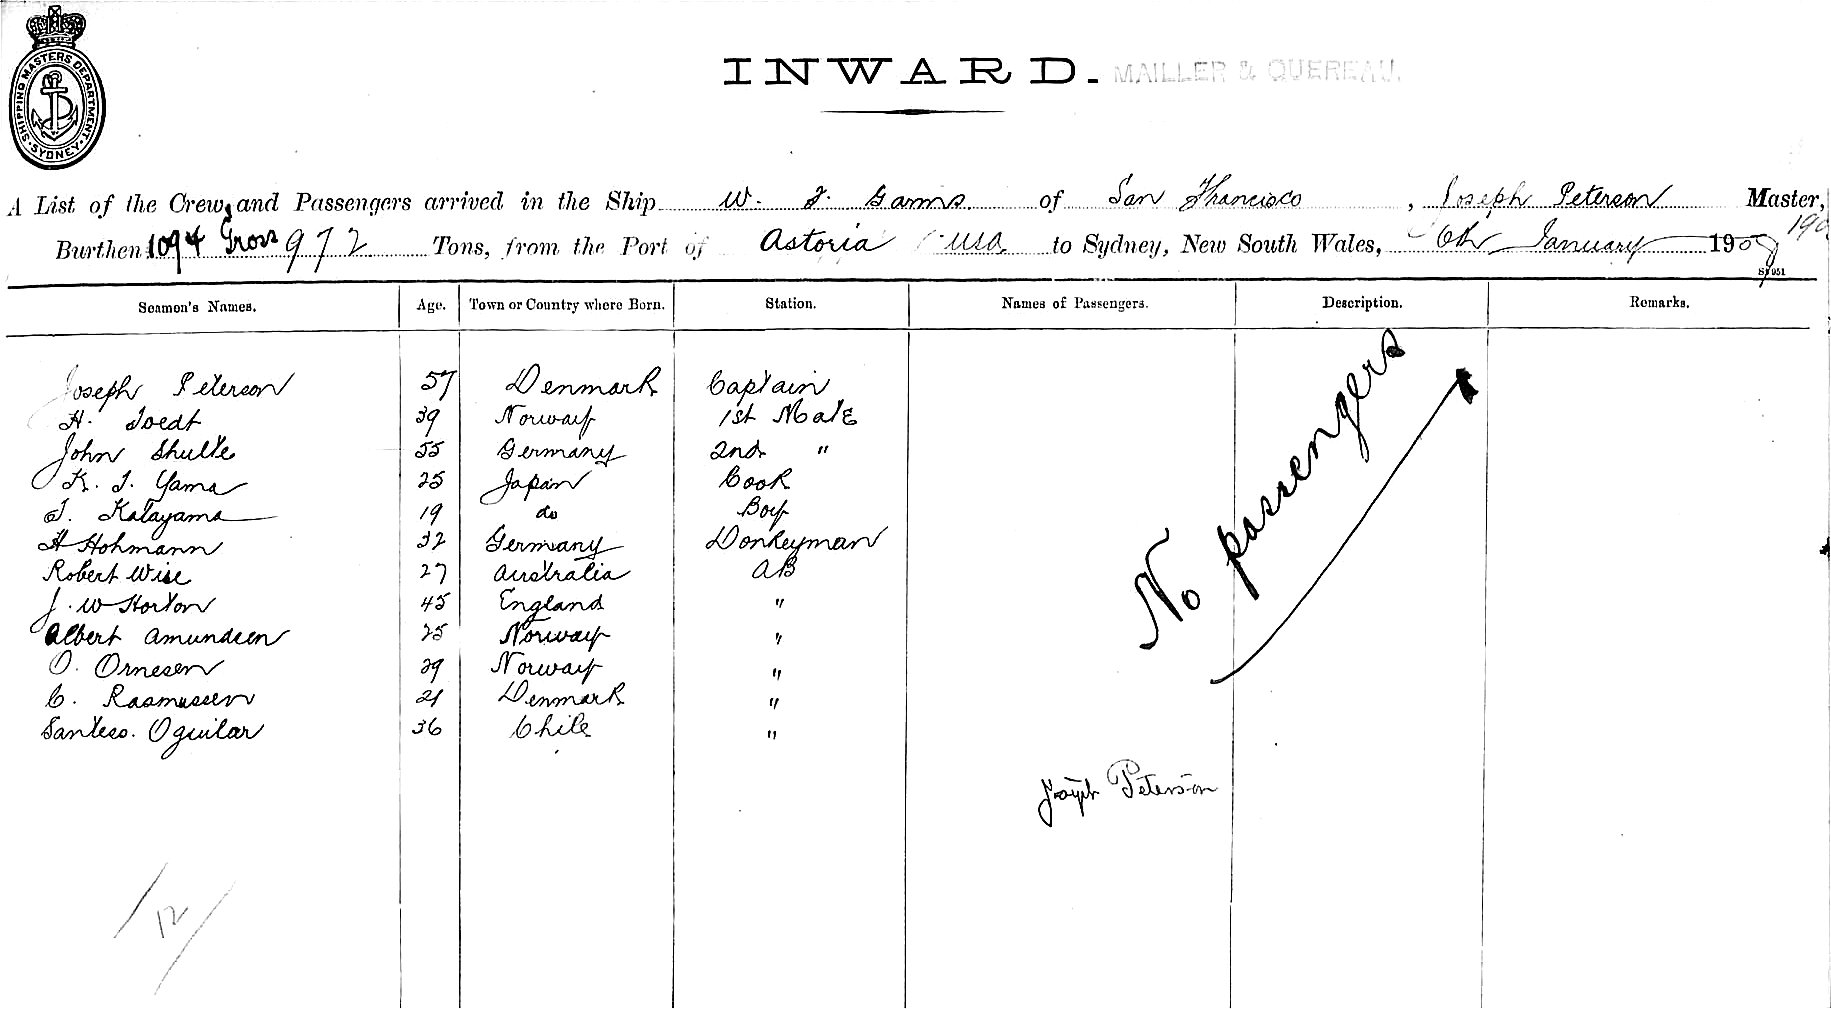 SHIPPING MASTERS DEPARTMENT
SYDNEY
INWARD. MAILLER & QUEREAU.
A List of the Crew, and Passengers arrived in the Ship W. of San Francisco, Joseph Peterson Master,
Burthen 1094 Gross 972 Tons, from the Port of Astoria USA to Sydney, New South Wales, 6th January 190
Seamen's Names. Age. Town or Country where Born. Station. Names of Passengers. Description. Remarks.
Joseph Peterson 57 Denmark Captain
H. Toedt 39 Norway 1st Mate
John Shulte 55 Germany 2nd "
K. T. Yama 25 Japan Cook
T. Katayama 19 do Boy
H Hohmann 32 Germany Donkeyman
Robert Wise 27 Australia AB
J. W Horton 45 England "
Albert Amundsen 25 Norway "
O. Ornesen 29 Norway "
C. Rasmussen 21 Denmark "
Oguilar 36 Chile "
No passengers
Joseph Peterson
12